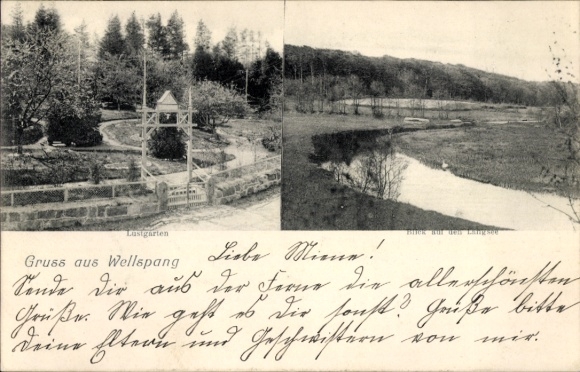 Lustgarten
Blick auf den Langsee
Gruss aus Wellspang
Liebe Miene!
Sende Dir aus der Ferne die allerschönsten
Grüße. Wie geht es Dir sonst? Grüße bitte
Deine Eltern und Geschwistern von mir.